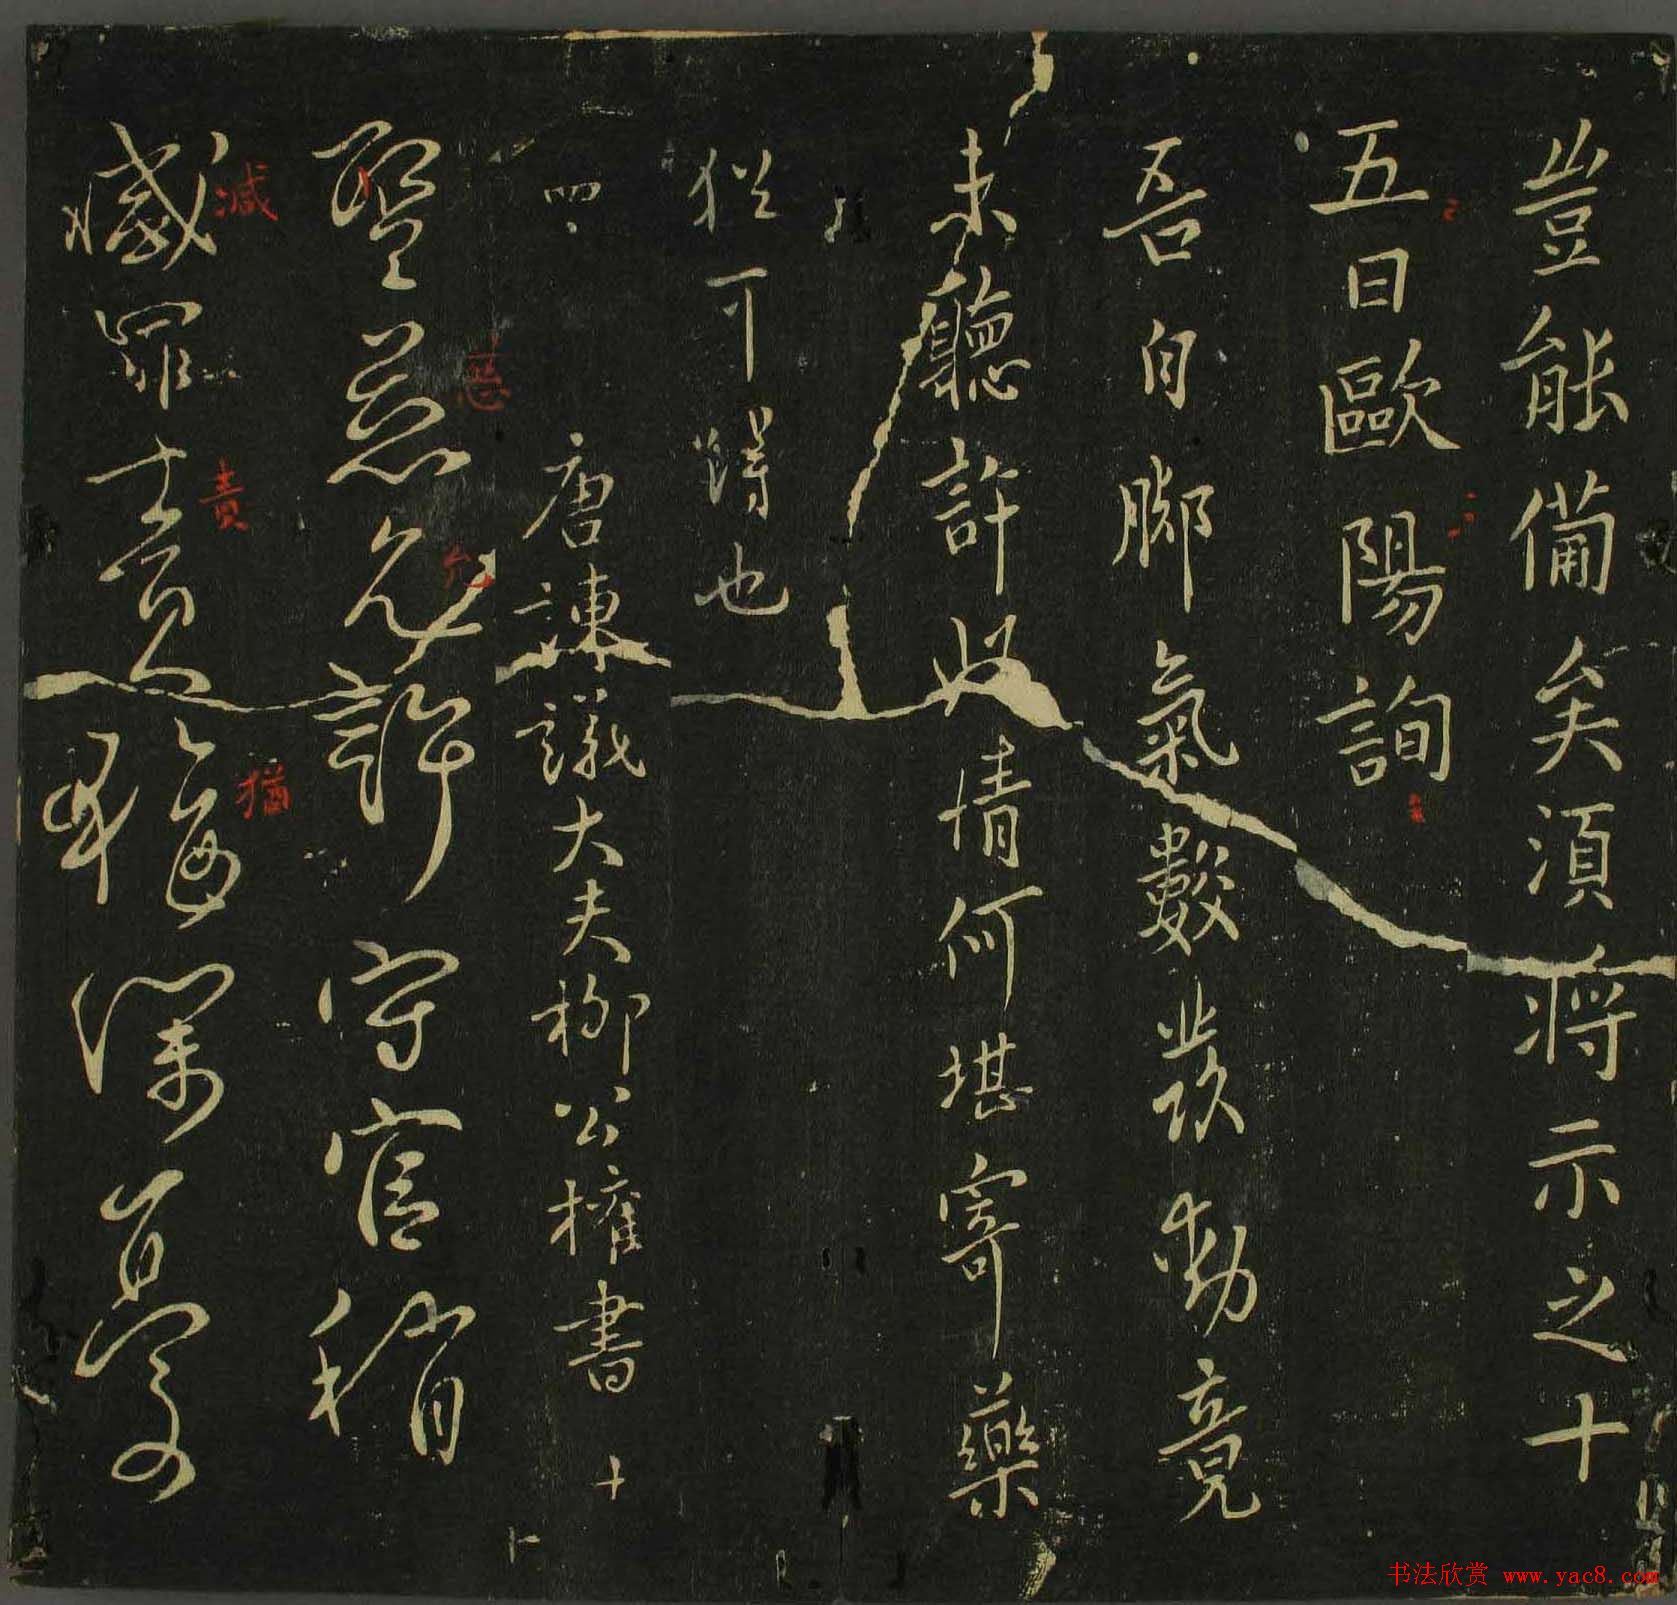 豈能備矣須將示之十
五日歐陽詢
吾自脚氣數發動竟
未聽許此情何堪寄藥
猶可得也
四
唐諫議大夫柳公權書 十
聖慈允許守官稍
慈
允
減罪責猶深
減
責
猶
书法欣赏 www.yac8.com